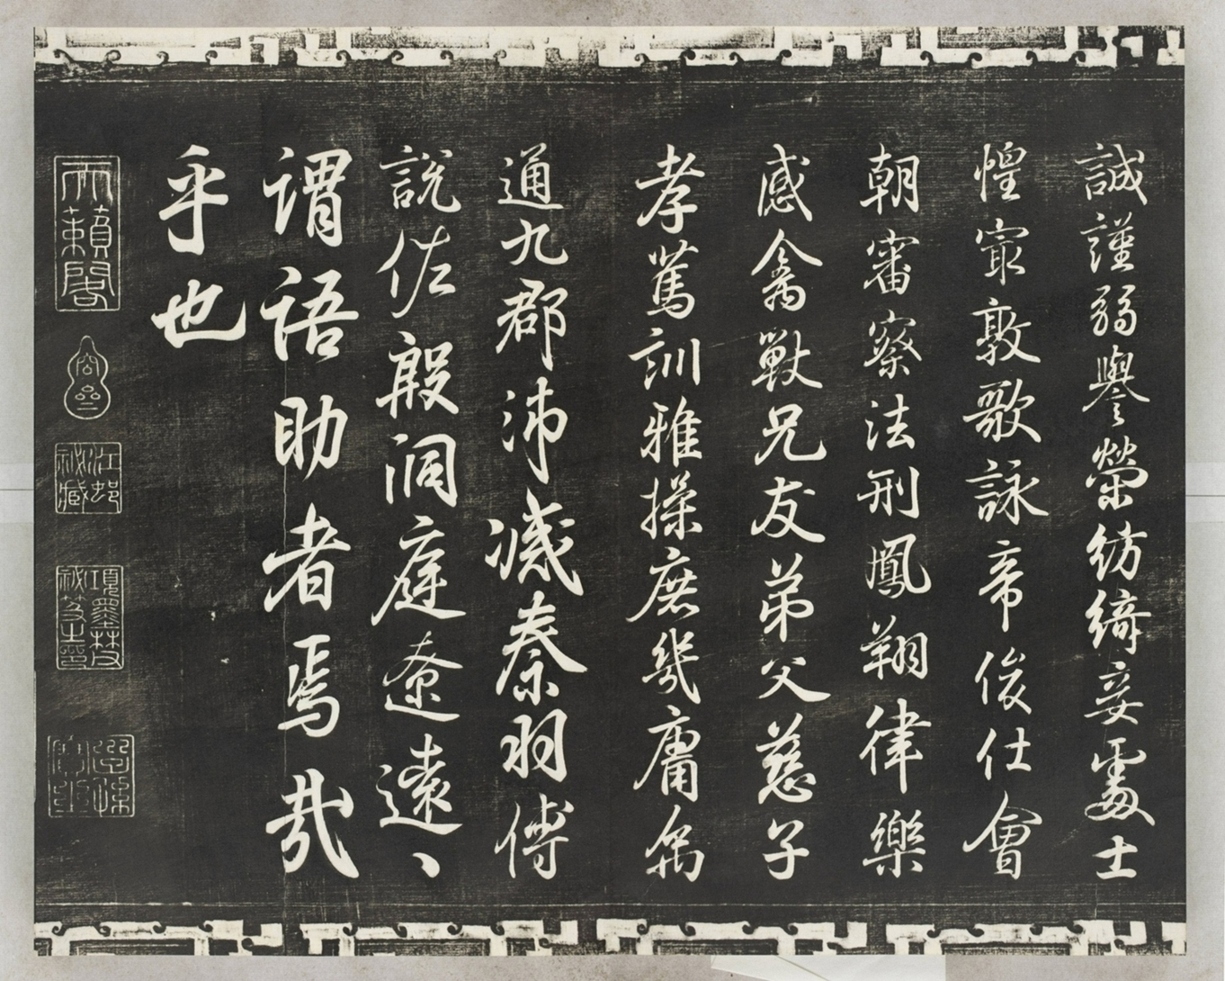 誠謹弱譽榮紡綺妾處士
惶㝡敦歌詠帝俊仕會
朝審察法刑鳳翔律樂
感禽獸兄友弟父慈子
孝篤訓雅操庶幾庸禹
通九郡沛滅秦羽傅
說佐殷洞庭遼遠丶
謂語助者焉哉
乎也
天籟閣
江邨祕藏
項墨林父祕笈之印